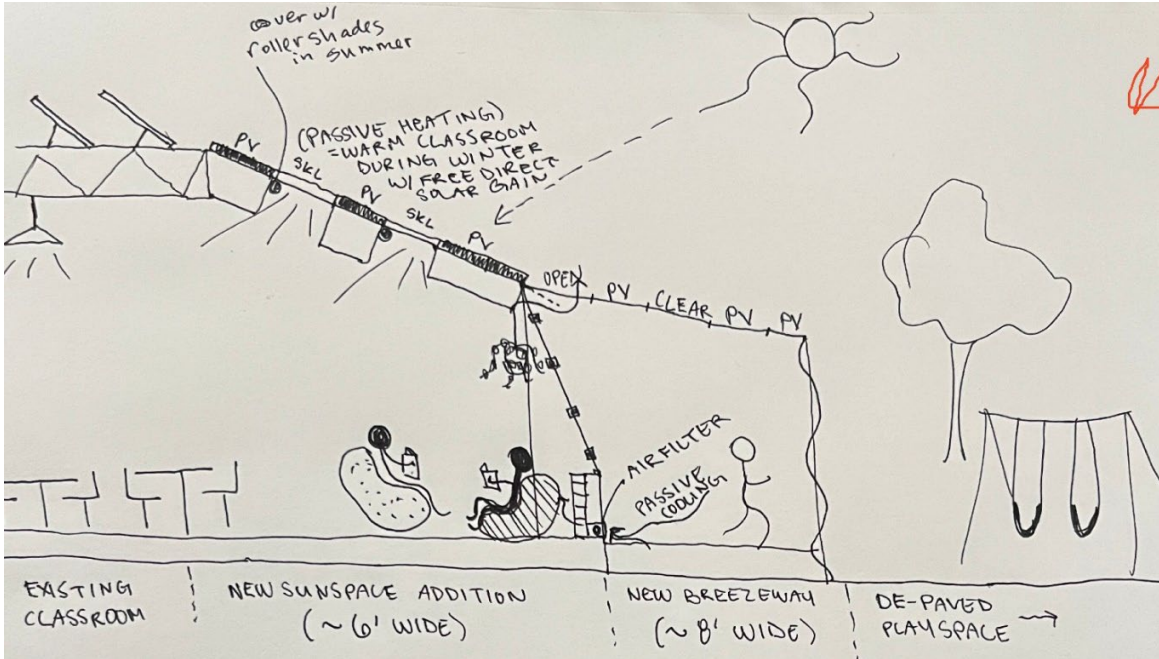 cover w/
roller shades
in summer
(PASSIVE HEATING)
=WARM CLASSROOM
DURING WINTER
W/ FREE DIRECT
SOLAR GAIN
PV
SKL
PV
SKL
PV
OPEN
PV
CLEAR
PV
PV
AIRFILTER
PASSIVE
COOLING
EXISTING
CLASSROOM
NEW SUNSPACE ADDITION
(~6' WIDE)
NEW BREEZEWAY
(~8' WIDE)
DE-PAVED
PLAYSPACE →